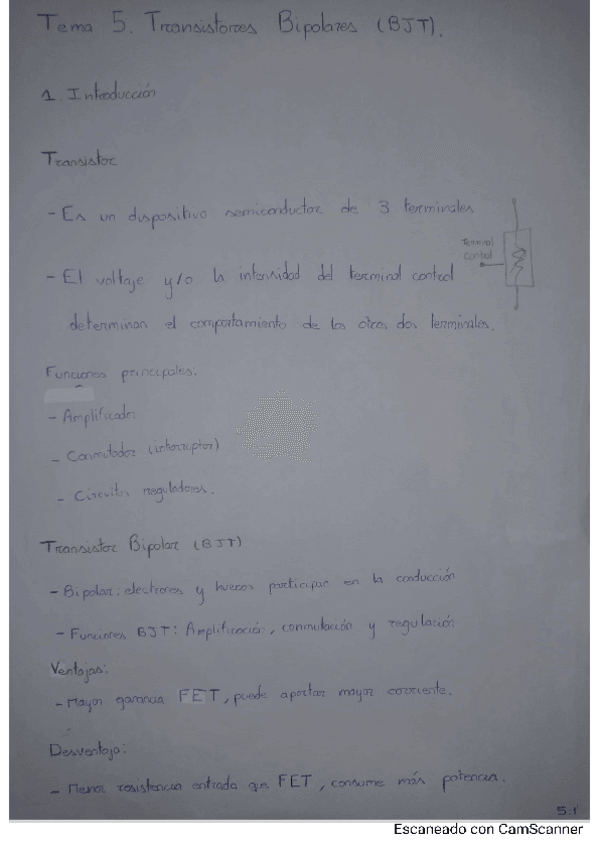 Tema 5. Transistores Bipolares (BJT).
1. Introducción
Transistor
- Es un dispositivo semiconductor de 3 terminales
Terminal
control
- El voltaje y/o la intensidad del terminal control
determinan el comportamiento de los otros dos terminales.
Funciones principales:
- Amplificador
- Conmutador (interruptor)
- Circuitos reguladores.
Transistor Bipolar (BJT)
- Bipolar: electrones y huecos participan en la conducción
- Funciones BJT: Amplificación, conmutación y regulación
Ventajas:
- Mayor ganancia FET, puede aportar mayor corriente.
Desventaja:
- Menor resistencia entrada que FET, consume más potencia.
5.1
Escaneado con CamScanner